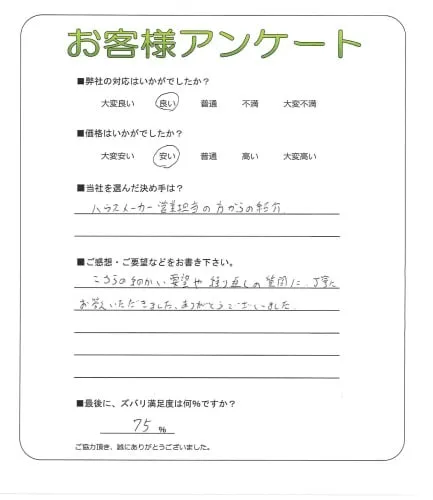 お客様アンケート
■弊社の対応はいかがでしたか？
大変良い 良い 普通 不満 大変不満
■価格はいかがでしたか？
大変安い 安い 普通 高い 大変高い
■当社を選んだ決め手は？
ハウスメーカー営業担当の方からの紹介
■ご感想・ご要望などをお書き下さい。
こちらの細かい要望や繰り返しの質問に、丁寧に
お答えいただきました、ありがとうございました。
■最後に、ズバリ満足度は何％ですか？
75 %
ご協力頂き、誠にありがとうございました。